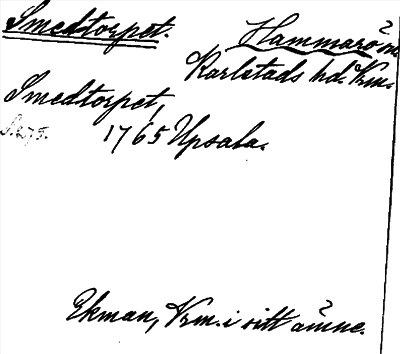 Smedtorpet. Hammarö sn.
Karlstads hd. Vrm.
Smedtorpet,
S. 275.
1765 Upsala.
Ekman, Vrm. i sitt ämne.